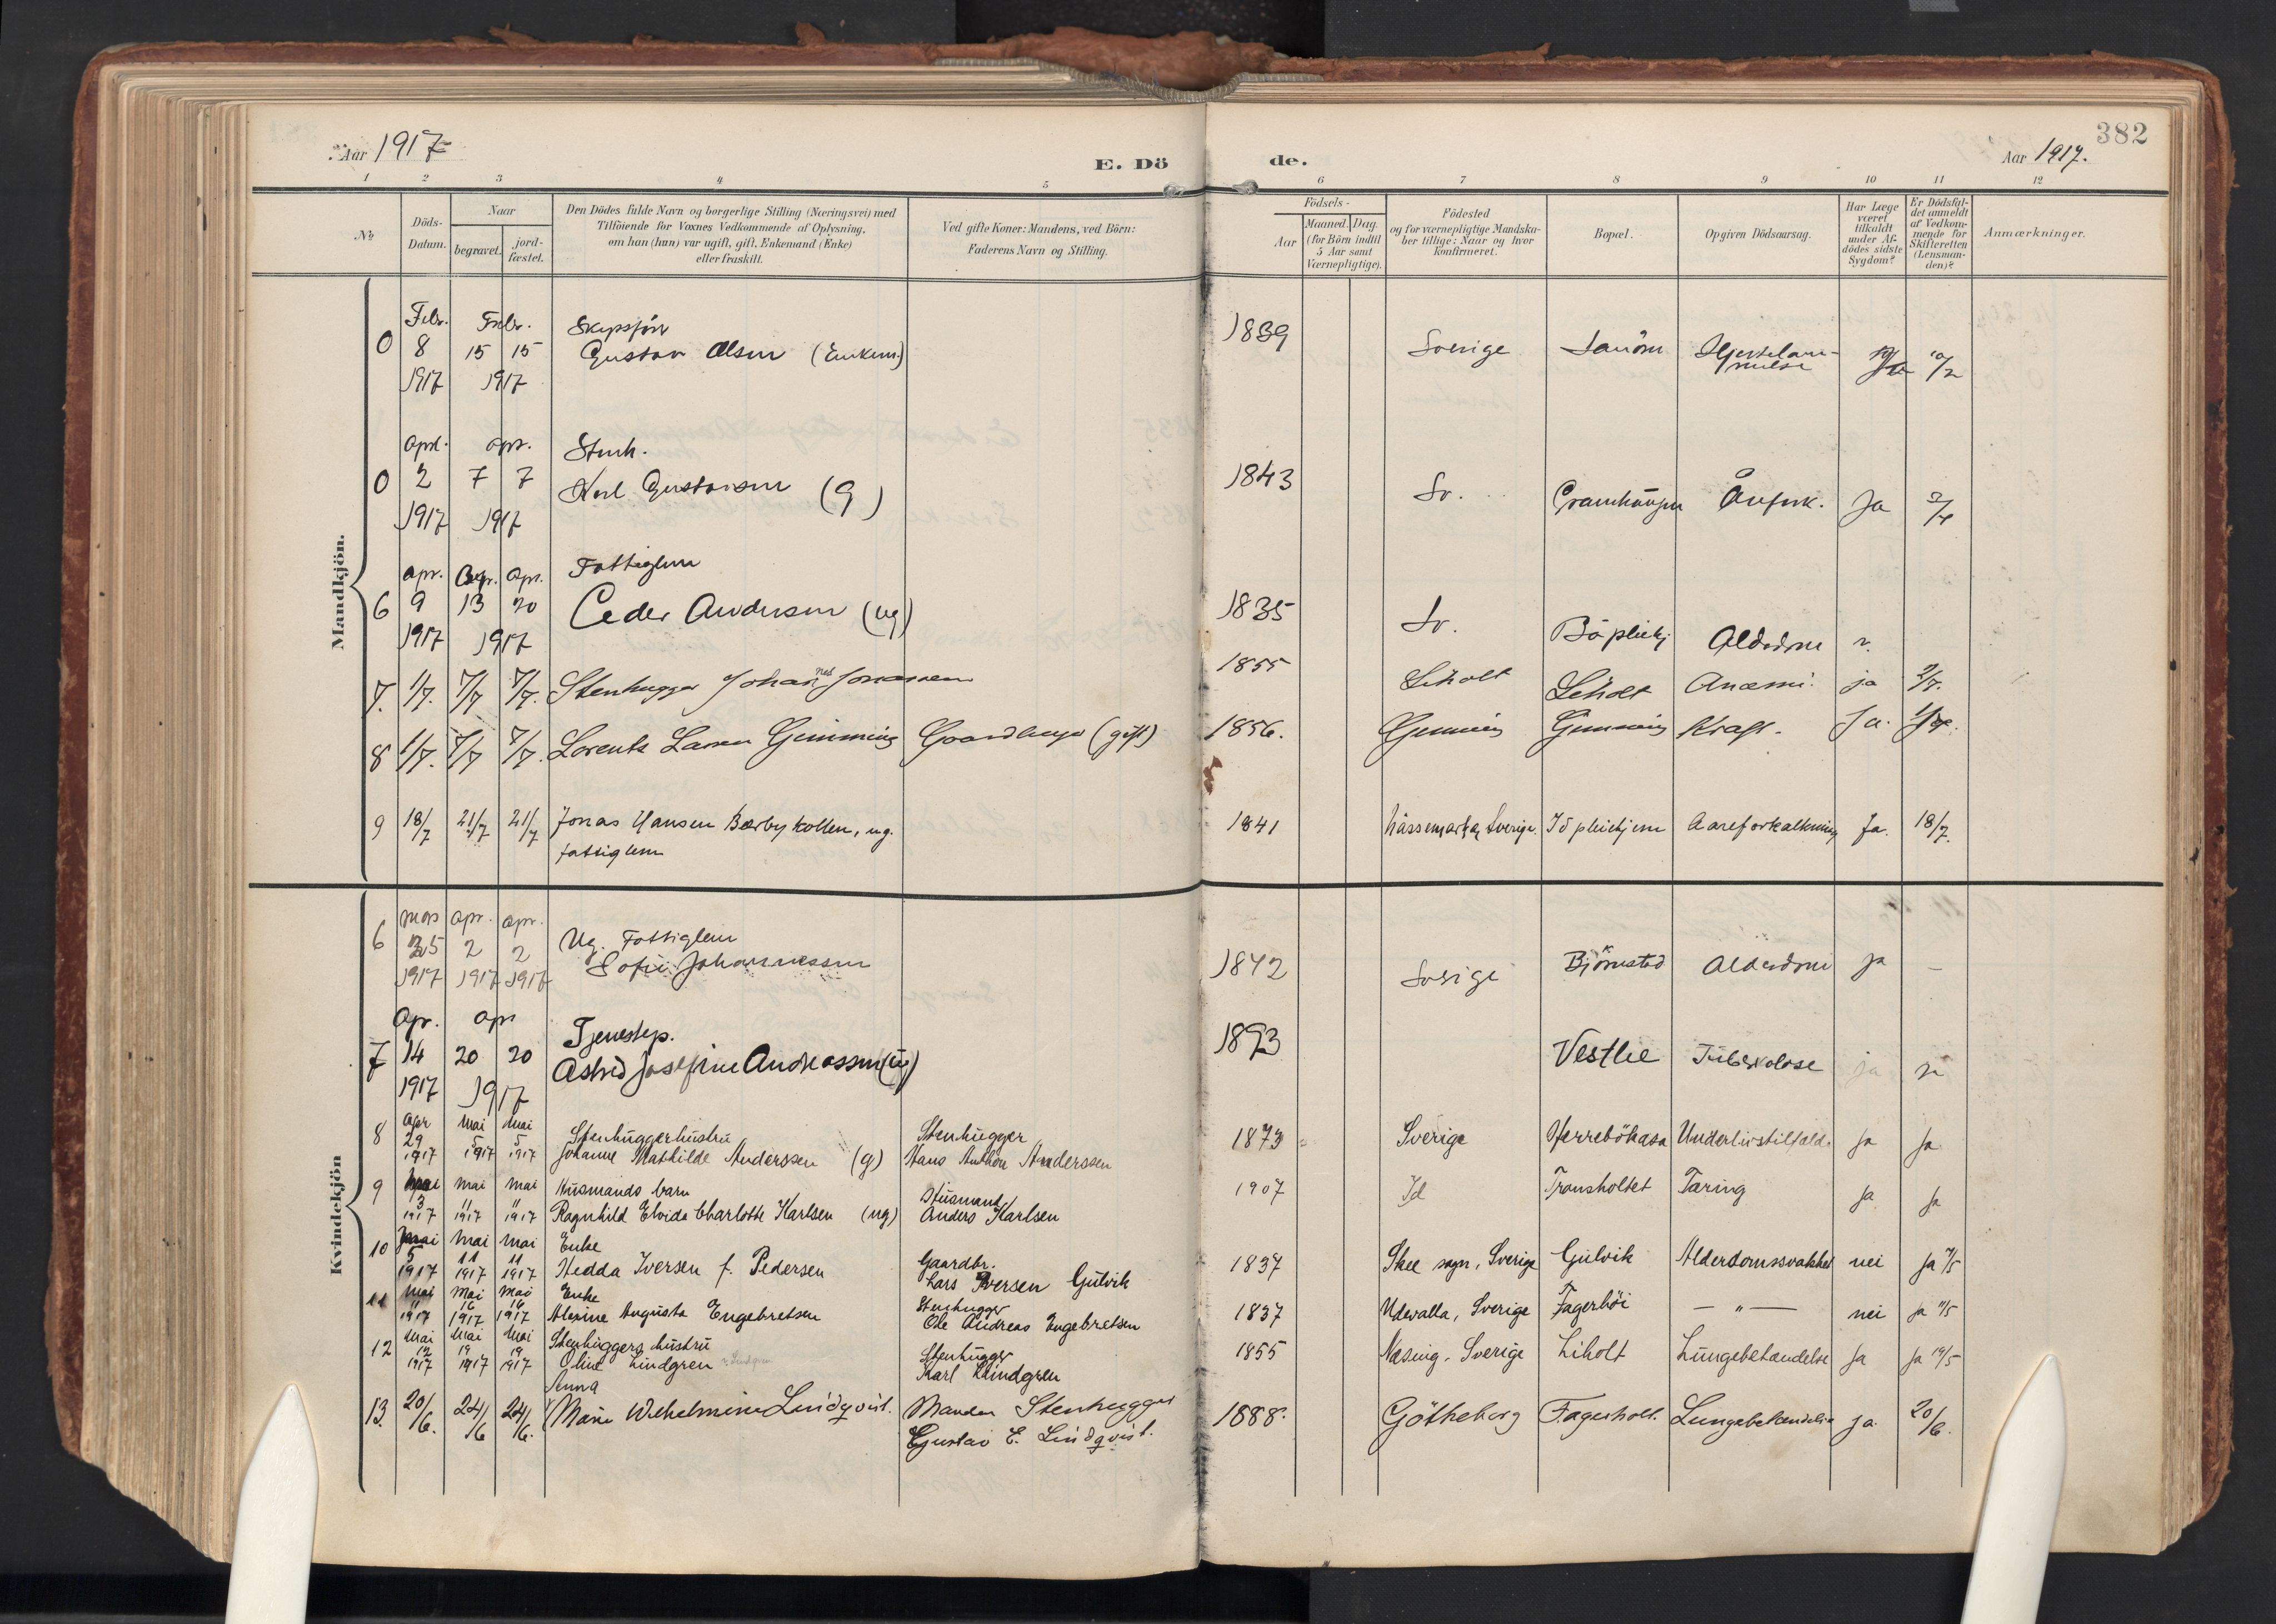 382
Aar 1917
E. Dö
de.
Aar 1917.
1 2 3 4 5 6 7 8 9 10 11 12
No
Döds-
Datum.
Naar
begravet.
jord-
fæstet.
Den Dödes fulde Navn og borgerlige Stilling (Næringsvei) med
Tilföiende for Voxnes Vedkommende af Oplysning,
om han (hun) var ugift, gift, Enkemand (Enke)
eller fraskilt.
Ved gifte Koner: Mandens, ved Börn:
Faderens Navn og Stilling.
Födsels-
Aar
Maaned. Dag.
(for Börn indtil
5 Aar samt
Værnepligtige).
Födested
og for værnepligtige Mandska-
ber tillige: Naar og hvor
konfirmeret.
Bopæl.
Opgiven Dödsaarsag.
Har Læge
været
tilkaldt
under Af-
dödes sidste
Sygdom?
Er Dödsfal-
det anmeldt
af Vedkom-
mende for
Skifteretten
(Lensman-
den)?
Anmærkninger.
Mandkjön.
Febr. Febr. Skipsför
0 8 15 15 Gustav Olsen (Enkem.) 1839 Sverige
1917 1917
april apr. Stenh.
0 2 7 7 Karl Gustavsen (g) 1843 Sv. Ja 3/4
1917 1917
apr. apr. Fattiglem
6 9 13 20 Peder Andersen (ug) 1835 Sv. Alderdom n.
1917 1917
7. 1/7. 7/7 7/7. Stenhugger Johannes Jonassen 1855 Liholt Liholt Anæmi. ja 2/7.
8 1/7. 7/7 7/7. Lorents Larsen Gimming Gaardbruger (gift) 1856. Gimming Gimming Kræft. Ja.
9 18/7 21/7 21/7 Jonas Hansen Bærby kollen, ug. 1841 Sverige. Id pleiehjem Aareforkalkning Ja. 18/7.
fattiglem
Kvindekjön
mars apr. apr.
6 25 2 2 Ug. Fattiglem
1917 1917 1917 Sofie Johannessen 1842 Sverige Björnstad Alderdom ja —
Apr. apr Tjenestep.
7 14 20 20 Astrid Josefine Andreassen (u) 1893 Vestlie Tuberkolose ja ja
1917 1917
8 apr mai mai Stenhuggerhustru Stenhugger
29 5 5
1917 1917 1917 Johanne Mathilde Anderssen (g) Hans Anthon Anderssen 1873 Sverige Herrebökasa Underlivstilfæld. Ja Ja
9 mai mai mai Husmands barn Husmand
3 11 11
1917 1917 1917 Ragnhild Elvida Charlotte Karlsen (ug) Anders Karlsen 1907 Id Transholtet Tæring Ja Ja
10 mai mai mai Enke Gaardbr.
5 11 11
1917 1917 1917 Hedda Iversen f. Pedersen Lars Iversen Gulvik 1837 Skee sogn, Sverige Gulvik Alderdomssvakhet nei Ja 7/5
11 mai mai mai Enke Stenhugger
11 16 16
1917 1917 1917 Alexine Augusta Engebretsen Ole Andreas Engebretsen 1837 Udevalla, Sverige Fagerhöi — " — nei Ja 11/5
12 mai mai mai Stenhuggers hustru Stenhugger
12 19 19
1917 1917 1917 Oline Lindgren Karl Lindgren 1855 Næsing, Sverige Liholt Lungebetændelse Ja Ja 14/5
Anna
13. 20/6. 24/6 24/6. Marie Wilhelmine Lindqvist. Manden Stenhugger 1888. Götheborg Fagerholt. Lungebetændelse ja. 20/6.
Gustav E. Lindqvist.